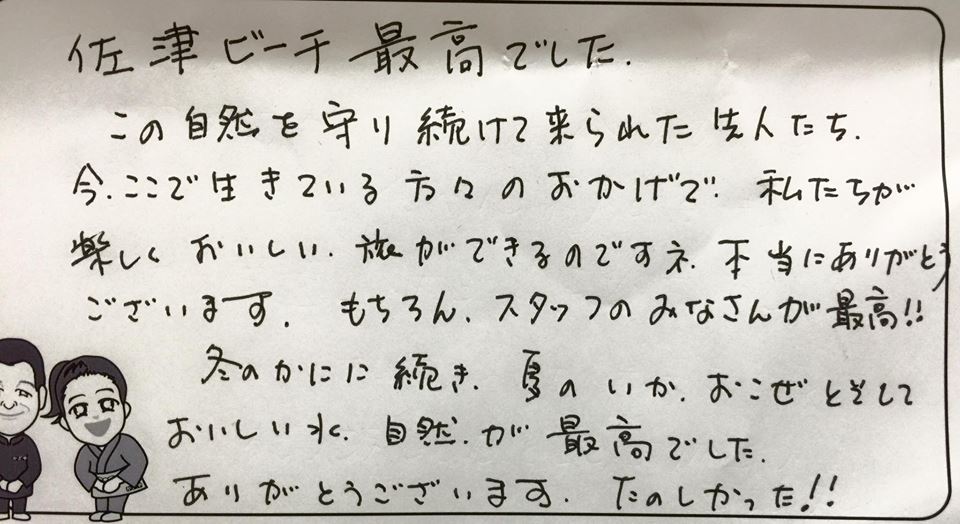 佐津ビーチ最高でした.
この自然を守り続けて来られた先人たち.
今.ここで生きている方々のおかげで.私たちが
楽しくおいしい.旅ができるのですネ.本当にありがとう
ございます.もちろん.スタッフのみなさんが最高!!
冬のかにに続き.夏のいか.おこぜとそして
おいしい水.自然.が最高でした.
ありがとうございます.たのしかった!!